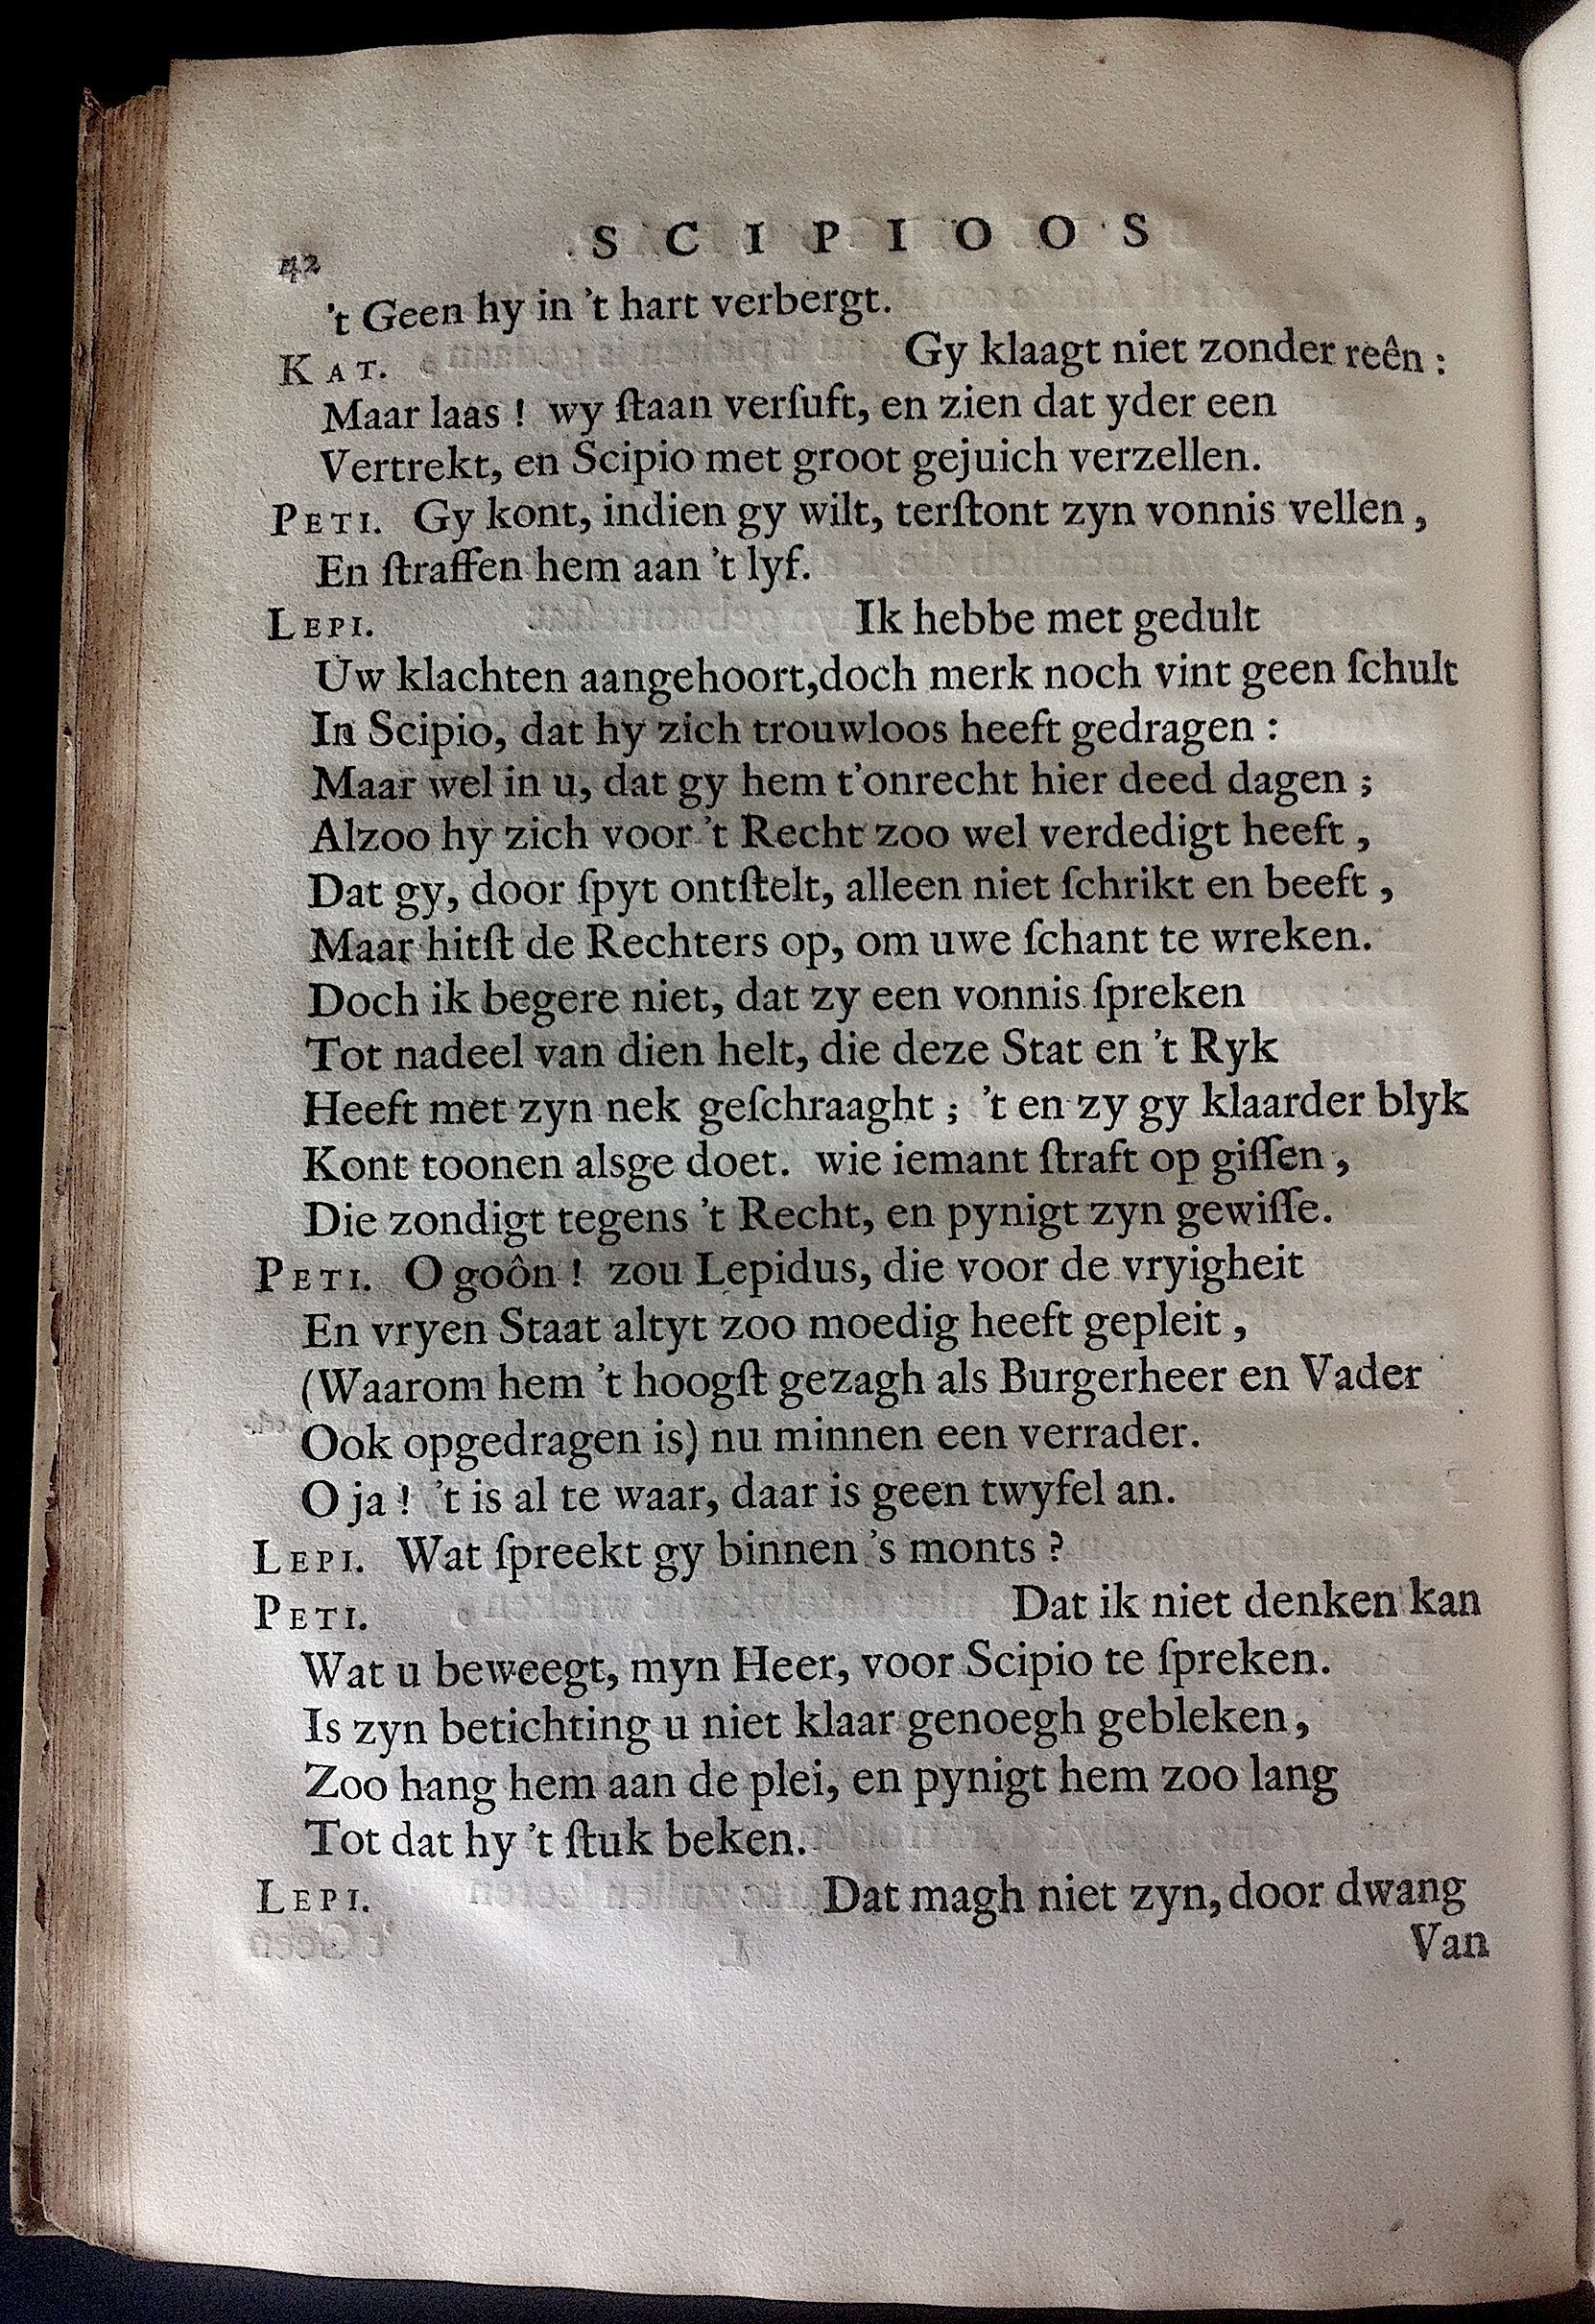 42
SCIPIOOS
't Geen hy in 't hart verbergt.
KAT. Gy klaagt niet zonder reên :
Maar laas ! wy ſtaan verſuft, en zien dat yder een
Vertrekt, en Scipio met groot gejuich verzellen.
PETI. Gy kont, indien gy wilt, terſtont zyn vonnis vellen ,
En ſtraffen hem aan 't lyf.
LEPI. Ik hebbe met gedult
Uw klachten aangehoort,doch merk noch vint geen ſchult
In Scipio, dat hy zich trouwloos heeft gedragen :
Maar wel in u, dat gy hem t'onrecht hier deed dagen ;
Alzoo hy zich voor 't Recht zoo wel verdedigt heeft ,
Dat gy, door ſpyt ontſtelt, alleen niet ſchrikt en beeft ,
Maar hitſt de Rechters op, om uwe ſchant te wreken.
Doch ik begere niet, dat zy een vonnis ſpreken
Tot nadeel van dien helt, die deze Stat en 't Ryk
Heeft met zyn nek geſchraaght ; 't en zy gy klaarder blyk
Kont toonen alsge doet. wie iemant ſtraft op giſſen ,
Die zondigt tegens 't Recht, en pynigt zyn gewiſſe.
PETI. O goôn ! zou Lepidus, die voor de vryigheit
En vryen Staat altyt zoo moedig heeft gepleit ,
(Waarom hem 't hoogſt gezagh als Burgerheer en Vader
Ook opgedragen is) nu minnen een verrader.
O ja ! 't is al te waar, daar is geen twyfel an.
LEPI. Wat ſpreekt gy binnen 's monts ?
PETI. Dat ik niet denken kan
Wat u beweegt, myn Heer, voor Scipio te ſpreken.
Is zyn betichting u niet klaar genoegh gebleken,
Zoo hang hem aan de plei, en pynigt hem zoo lang
Tot dat hy 't ſtuk beken.
LEPI. Dat magh niet zyn, door dwang
Van